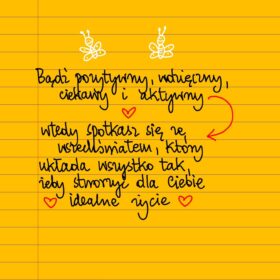 Bądź pozytywny, wdzięczny,
ciekawy i aktywny
wtedy spotkasz się ze
wszechświatem, który
układa wszystko tak,
żeby stworzyć dla Ciebie
idealne życie